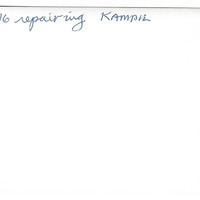 16 repairing KAMPIL